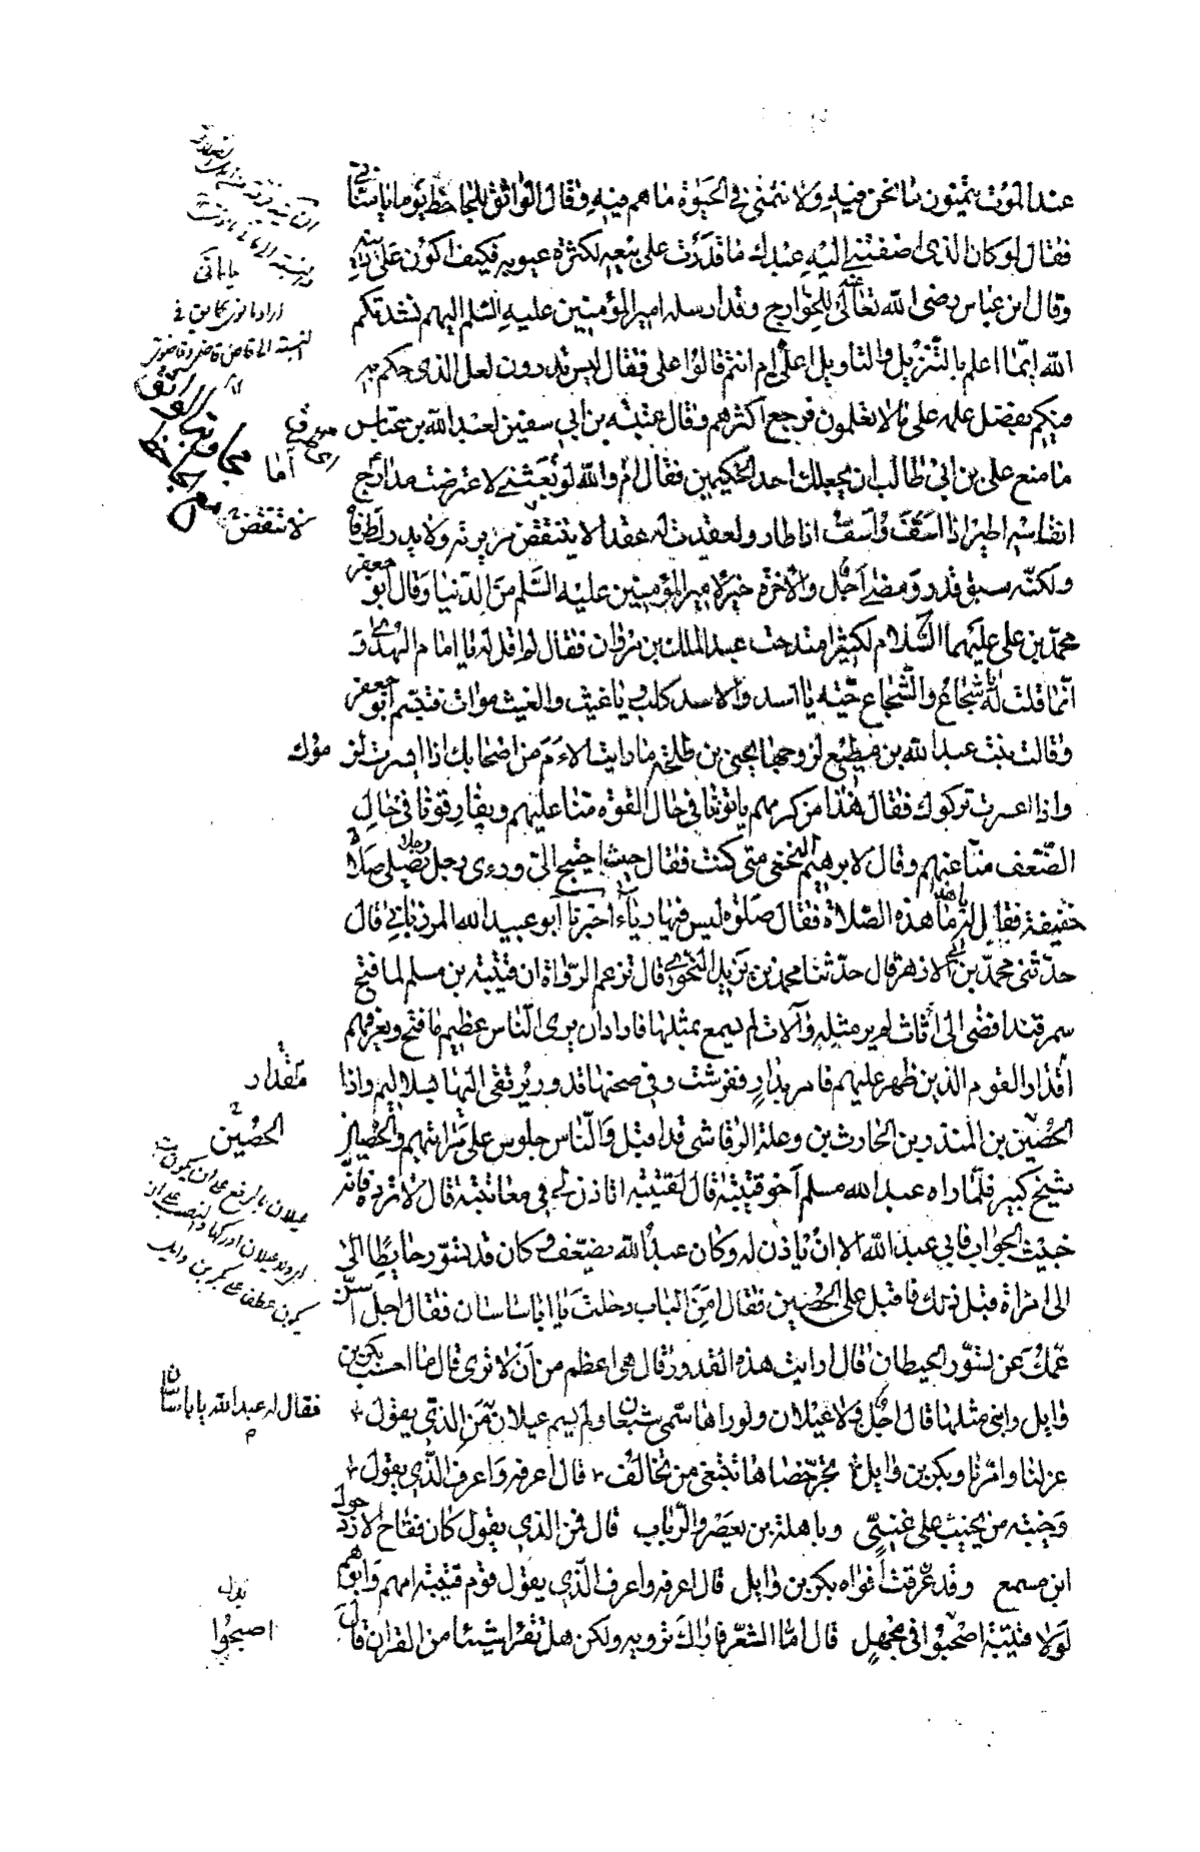 عند الموت يتمنون ما نحن فيه ولا نتمنى في الحيوة ما هم فيه وقال الواثق للجاحظ يوما يا ماني
فقال لو كان الذي اضفتني اليه عبدك ما قدرت على بيعه لكثرة عيوبه فكيف اكون على دينه
وقال ابن عباس رضى الله تعالى للخوارج وقد ارسله امير المؤمنين عليه السلم اليهم نشدتكم
الله ايما اعلم بالتنزيل والتاويل اعلى ام انتم قالوا على فقال ليس تدرون لعل الذي حكم به
فيكم بفضل علمه على ما لا تعلمون فرجع اكثرهم وقال عتبة بن ابي سفين لعبد الله بن عباس
ما منع على بن ابي طالب ان يجعلك احد الحكمين فقال ام والله لو بعثني لاعترضت مدارج
انفاسه اطير اذا اسف واسف اذا طار ولعقدت له عقدا لا ينتقض مريرته ولا يدرك طرفاه
ولكنه سبق قدر ومضى اجل والاخرة خير لامير المؤمنين عليه السلم من الدنيا وقال ابو جعفر
محمد بن على عليهما السلام لكثير امتدحت عبد الملك بن مروان فقال لم اقل له يا امام الهدى و
انما قلت له شجاع والشجاع حية يا اسد والاسد كلب يا غيث والغيث موات فتبسم ابو جعفر
وقالت بنت عبد الله بن مطيع لزوجها يحيى بن طلحة ما رايت الاءم من اصحابك اذا ايسرت لزموك
واذا اعسرت تركوك فقال هذا من كرمهم ياتوننا في حال القوة منا عليهم ويفارقوننا في حال
الضعف منا عنهم وقال لابرهيم النخعي متى كنت فقال حيث احتيج الى ورءى رجل رجلا يصلى صلاة
خفيفة فقال له ما هذه الصلاة فقال صلوة ليس فيها رياء اخبرنا ابو عبيد الله المرزباني قال
حدثني محمد بن ابي الازهر قال حدثنا محمد بن يزيد النحوي قال تزعم الرواة ان قتيبة بن مسلم لما فتح
سمرقند افضى الى اثاث لم ير مثله وآلات لم يسمع بمثلها فاراد ان يرى الناس عظيم ما فتح ويعرفهم
اقدار القوم الذين ظهر عليهم فامر بدار ففرشت وفي صحنها قدور يرتقى اليها بسلاليم واذا
الحضين بن المنذر بن الحارث بن وعلة الرقاشى قد اقبل والناس جلوس على مراتبهم والحضين
شيخ كبير فلما راه عبد الله مسلم اخو قتيبة قال لقتيبة اتاذن لي في معاتبته قال لا ترده فانه
خبيث الجواب فابى عبد الله الا ان ياذن له وكان عبد الله يضعف وكان قد تسور حايطا الى
الى امراة قبل ذلك فاقبل على الحضين فقال امن الباب دخلت يا ابا ساسان فقال اجل اسن
عمك عن تسور الحيطان قال ارايت هذه القدور قال هي اعظم من ان لا ترى قال ما احسب بكر بن
وايل راى مثلها قال اجل ولا عيلان ولو راها سمى شبعان ولم يسم عيلان فمن الذي يقول
عزلنا وامرنا وبكر بن وايل تجر خصاها تبتغي من تحالف قال اعرفه واعرف الذي يقول
وخيبة من يخيب على غني وباهلة بن يعصر والرباب قال فمن الذي يقول كان فقاح الازد حول
ابن مسمع وقد عرقت افواه بكر بن وايل قال اعرفه واعرف الذي يقول قوم قتيبة امهم وابوهم
لولا قتيبة اصبحوا في مجهل قال اما الشعر فاراك ترويه ولكن هل تقرا شيئا من القران قال
ياماني
مجاوبة الواثق مع الجاحظ
اما
لا تنتقض
موك
مقدار
الحضين
فقال له عبد الله يا با ساسان
بدل
اصبحوا